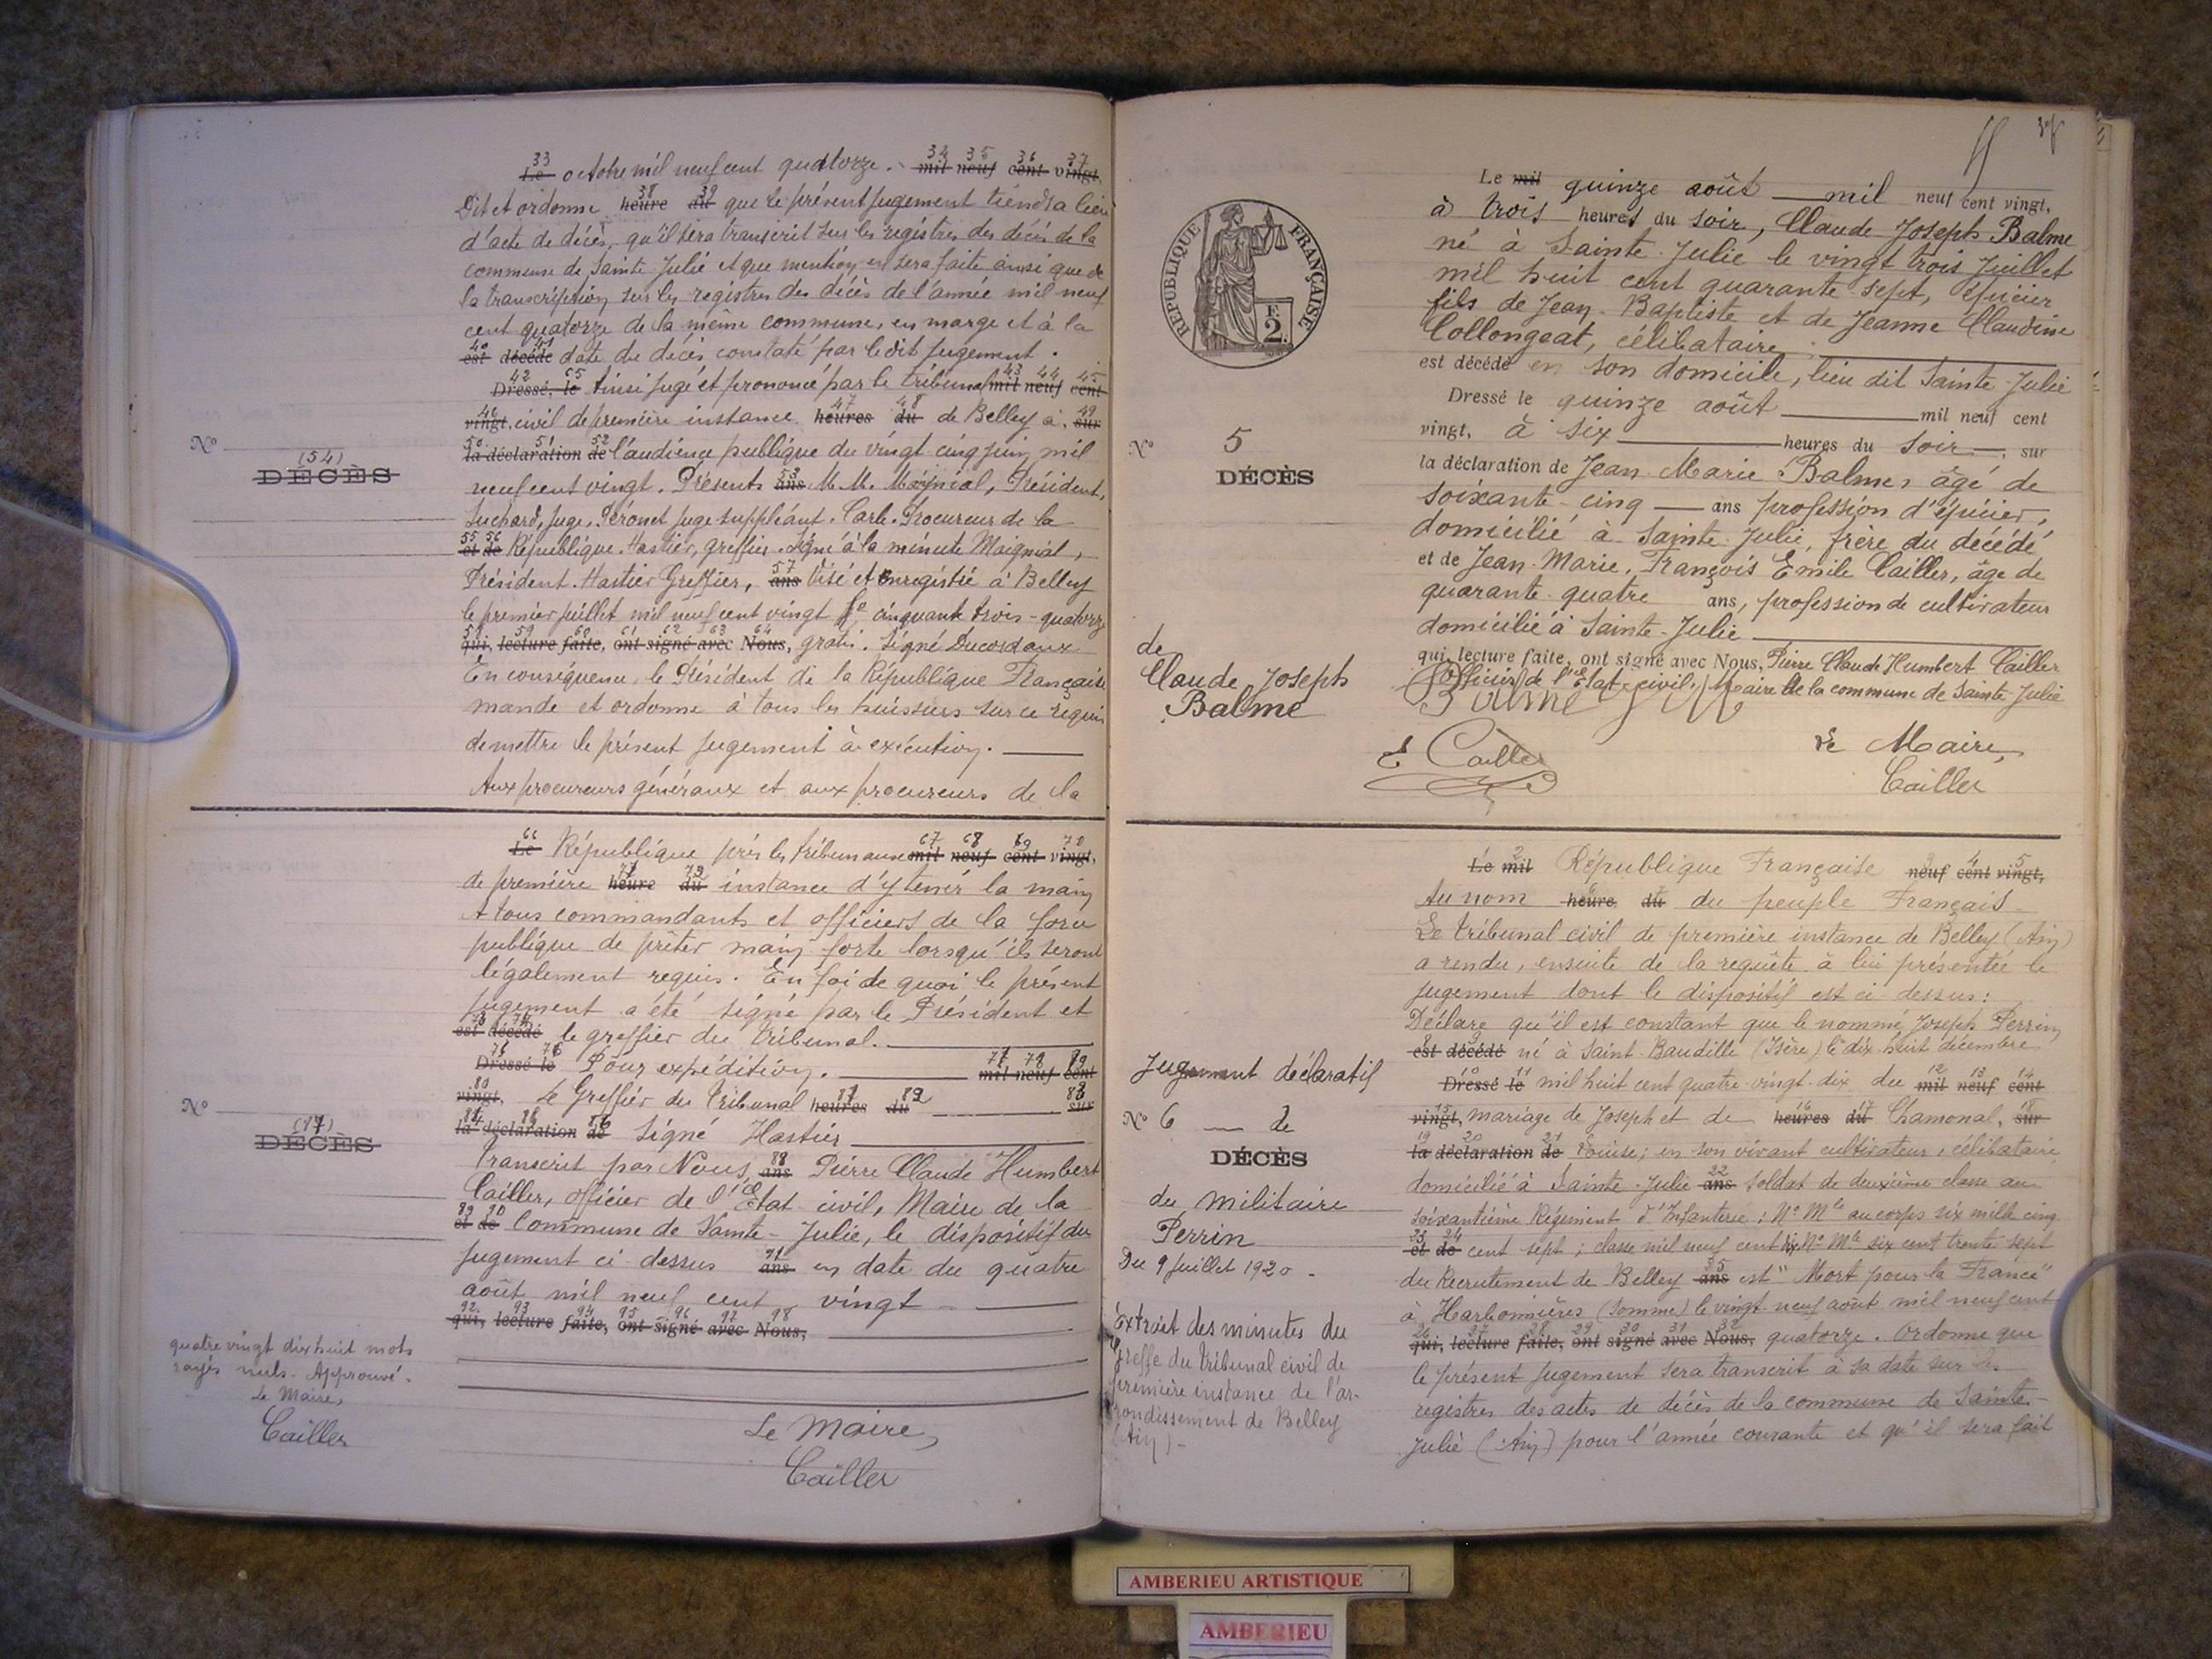 33 34 35 36 37
Le octobre mil neuf cent quatorze. mil neuf cent vingt,
38 39
Dit et ordonne heure du que le présent jugement tiendra lieu
d'acte de décès, qu'il sera transcrit sur les registres des décès de la
commune de Sainte Julie et que mention en sera faite ainsi que de
la transcription sur les registres des décès de l'année mil neuf
cent quatorze de la même commune, en marge et à la
40 41
est décédé date du décès constaté par le dit jugement.
42 65 43 44 45
Dressé, le Ainsi jugé et prononcé par le tribunal mil neuf cent
46 47 48 49
vingt, civil de première instance heures du de Belley à, sur
50 51 52
la déclaration de l'audience publique du vingt cinq juin mil
53
neuf cent vingt. Présents ans M. M. Maignial, Président,
Juge, Péronet juge suppléant. Carle. Procureur de la
55 56
et de République. Hastier, greffier. Signé à la minute Maignial,
57
Président. Hastier Greffier, ans Visé et enregistré à Belley
le premier juillet mil neuf cent vingt fo cinquante trois - quatorze
58 59 60 61 62 63 64
qui, lecture faite, ont signé avec Nous, gratis. Signé Ducordaux
En conséquence, le Président de la République Française
mande et ordonne à tous les huissiers sur ce requis
de mettre le présent jugement à exécution.
Aux procureurs généraux et aux procureurs de la
N°
(54)
DÉCÈS
66 67 68 69 70
Le République près les tribunaux mil neuf cent vingt,
71 72
de première heure du instance d'y tenir la main
A tous commandants et officiers de la force
publique de prêter main forte lorsqu'ils seront
légalement requis. En foi de quoi le présent
jugement a été signé par le Président et
73 74
est décédé le greffier du tribunal.
75 76 77 78 79
Dressé le Pour expédition. mil neuf cent
80 81 82 83
vingt, Le Greffier du Tribunal heures du sur
84 85 86
la déclaration de Signé Hastier
88
Transcrit par Nous, ans Pierre Claude Humbert
Cailler, officier de l'Etat civil, Maire de la
89 90
et de Commune de Sainte-Julie, le dispositif du
91
jugement ci dessus ans en date du quatre
août mil neuf cent vingt
92 93 94 95 96 97 98
qui, lecture faite, ont signé avec Nous,
N°
(87)
DÉCÈS
quatre vingt dix huit mots
rayés nuls. Approuvé.
Le Maire,
Cailler
Le Maire,
Cailler
Le mil quinze août mil neuf cent vingt,
à trois heures du soir, Claude Joseph Balme
né à Sainte-Julie le vingt trois Juillet
mil huit cent quarante-sept, épicier
fils de Jean-Baptiste et de Jeanne Claudine
Collongeat, célibataire
est décédé en son domicile, lieu dit Sainte-Julie
Dressé le quinze août mil neuf cent
vingt, à six heures du soir, sur
la déclaration de Jean-Marie Balme, âgé de
soixante-cinq ans profession d'épicier,
domicilié à Sainte-Julie, frère du décédé
et de Jean-Marie, François Emile Cailler, âge de
quarante quatre ans, profession de cultivateur
domicilié à Sainte-Julie
qui, lecture faite, ont signé avec Nous, Pierre Claude Humbert Cailler
Officier de l'Etat-civil, Maire de la commune de Sainte Julie
Balme
E Cailler
Le Maire,
Cailler
REPUBLIQUE FRANÇAISE
F.
2.
N° 5
DÉCÈS
de
Claude Joseph
Balme
2 3 4 5
Le mil République Française neuf cent vingt,
Au nom heure du du peuple Français
Le tribunal civil de première instance de Belley (Ain)
a rendu, ensuite de la requête à lui présentée le
jugement dont le dispositif est ci-dessus:
Déclare qu'il est constant que le nommé Joseph Perrin
8 9
est décédé né à Saint-Baudille (Isère) le dix huit décembre
10 11 12 13 14
Dressé le mil huit cent quatre-vingt-dix du mil neuf cent
15 16 17 18
vingt, mariage de Joseph et de heures du Chamonal, sur
19 20 21
la déclaration de Louise; en son vivant cultivateur, célibataire
22
domicilié à Sainte-Julie ans soldat de deuxième classe au
soixantième Régiment d'Infanterie; N° Mle au corps six mille cinq
23 24
et de cent sept; classe mil neuf cent dix N° Mle six cent trente sept
25
du Recrutement de Belley ans est "Mort pour la France"
à Harbonnières (Somme) le vingt-neuf août mil neuf cent
26 27 28 29 30 31 32
qui, lecture faite, ont signé avec Nous, quatorze. Ordonne que
le présent jugement sera transcrit à sa date sur les
registres des actes de décès de la commune de Sainte-
Julie (Ain) pour l'année courante et qu'il sera fait
Jugement déclaratif
N° 6 de
DÉCÈS
du militaire
Perrin
Du 9 Juillet 1920
Extrait des minutes du
Greffe du tribunal civil de
première instance de l'ar-
rondissement de Belley
(Ain)
AMBERIEU ARTISTIQUE
AMBERIEU